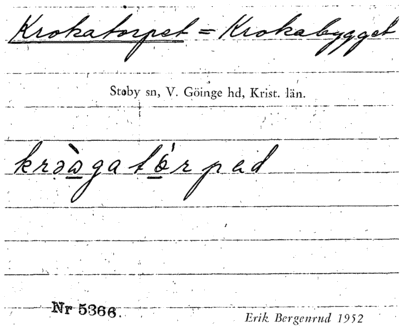 Krokatorpet = Krokabygget
Stoby sn, V. Göinge hd, Krist. län.
krəὰgatórpəd
Nr 5366.
Erik Bergenrud 1952